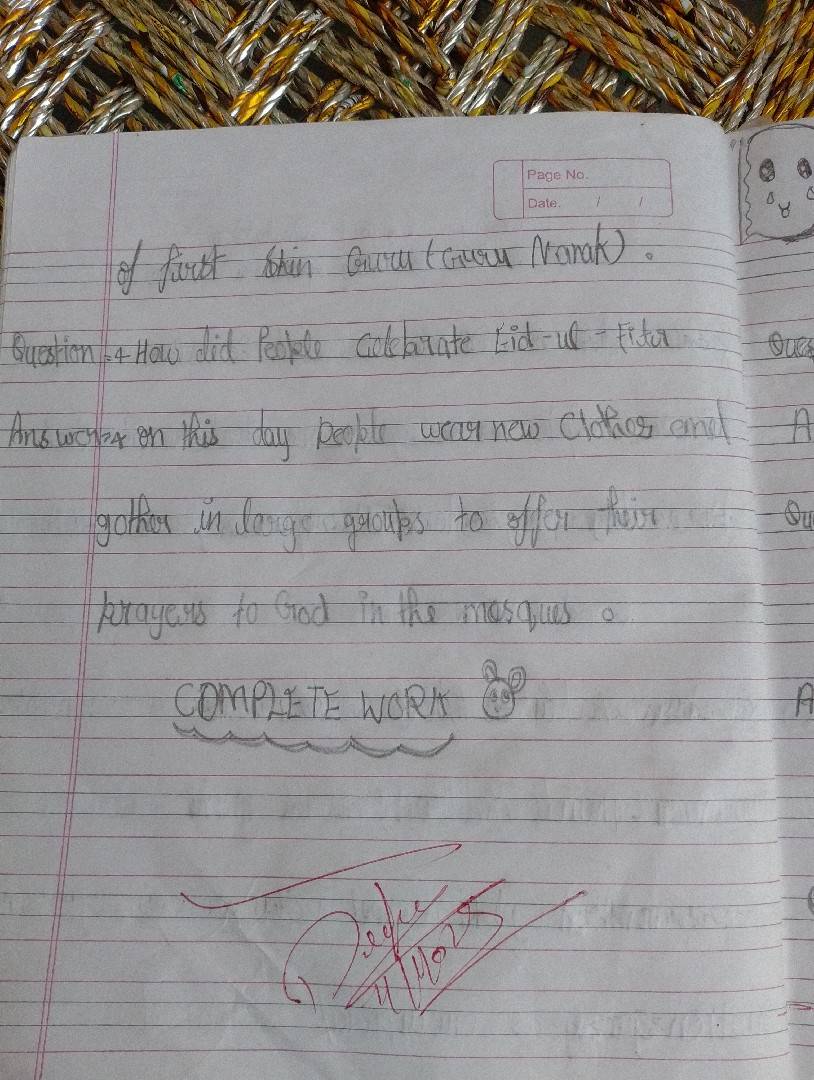 Page No.
Date. / /
of first Skin Guru (Guru Nanak).
Question-4 How did People Celebrate Eid-ul-Fitur
Answer-4 on this day people wear new Clothes and
gather in large groups to offer their
prayers to God in the mosques.
COMPLETE WORK
Ques
A
Qu
A